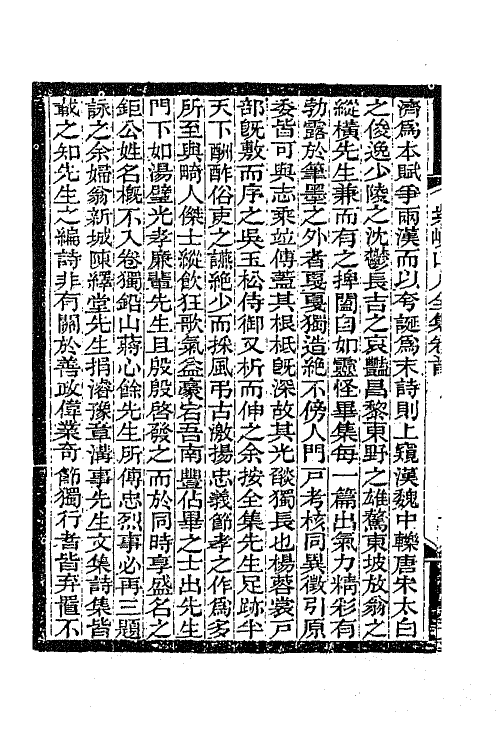 濟爲本賦爭兩漢而以夸誕爲末詩則上窺漢魏中轢唐宋太白
之俊逸少陵之沈鬱長吉之哀豔昌黎東野之雄騖東坡放翁之
縱橫先生兼而有之捭闔臼如靈怪畢集每一篇出氣力精彩有
勃露於筆墨之外者戛戛獨造絕不傍人門戸考核同異徵引原
委皆可與志乘竝傳蓋其根柢旣深故其光燄獨長也楊蓉裳戸
部旣敷而序之吳玉松侍御又析而伸之余按全集先生足跡半
天下酬酢俗吏之讌絕少而採風弔古激揚忠義節孝之作爲多
所至與畸人傑士縱飲狂歌氣益豪宕吾南豐佔畢之士出先生
門下如湯璧光孝廉輩先生且殷殷啓發之而於同時享盛名之
鉅公姓名槪不入卷獨鉛山蔣心餘先生所傳忠烈事必再三題
詠之余婦翁新城陳繹堂先生捐濬豫章溝事先生文集詩集皆
載之知先生之編詩非有關於善政偉業奇節獨行者皆弃匶不